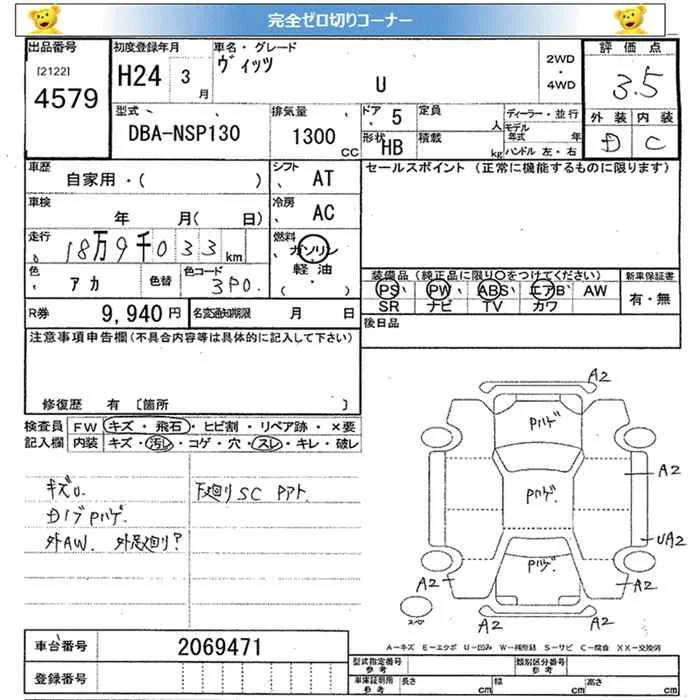 完全ゼロ切りコーナー
出品番号
[2122]
4579
初度登録年月
H24 3 月
車名・グレード
ヴィッツ
U
2WD
・
4WD
評価点
3.5
外装 内装
D C
型式
DBA-NSP130
排気量
1300 CC
ドア 5
形状 HB
定員 人
積載 kg
ディーラー・並行
モデル年式 年
ハンドル 左・右
車歴
自家用・( )
シフト
AT
車検
年 月( 日)
冷房
AC
走行
18万9千033 km
燃料
ガソリン
軽油
( ・ )
色
アカ
色替
色コード
3P0.
R券 9,940 円
名変通知期限 月 日
セールスポイント (正常に機能するものに限ります)
装備品 (純正品に限り○をつけてください)
PS PW ABS エアB AW
SR ナビ TV カワ
新車保証書
有・無
後日品
注意事項申告欄(不具合内容等は具体的に記入して下さい)
修復歴 有 [箇所 ]
検査員
記入欄
FW キズ・飛石・ヒビ割・リペア跡・×要
内装 キズ・汚レ・コゲ・穴・スレ・キレ・破レ
キズ
DノブPハゲ.
外AW. 外足廻り?
下廻りSC Pアト.
A2
Pハゲ
Pハゲ
Pハゲ.
A2
UA2
A2
A2
A2
A2
スペア
A−キズ E−エクボ U−凹み W−補修跡 S−サビ C−腐食 XX−交換済
車台番号 2069471
登録番号
型式指定番号
参考
類別区分番号
参考
車庫証明用
参考
長さ cm
幅 cm
高さ cm